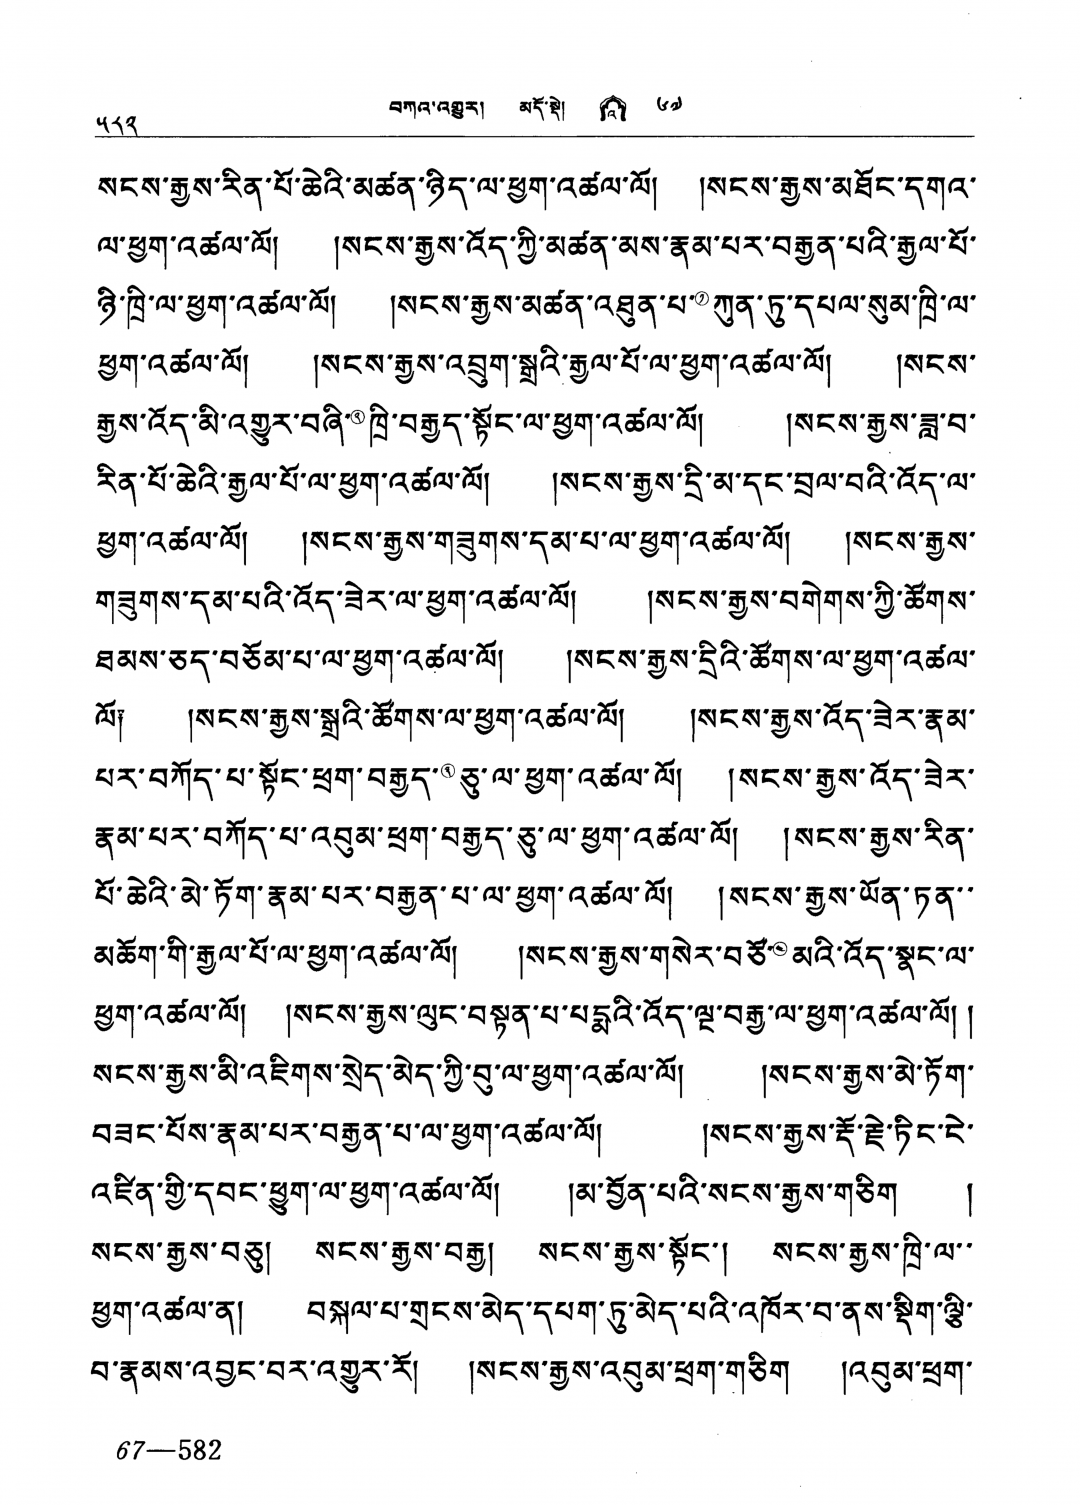 ༥༨༢ བཀའ་འགྱུར། མདོ་སྡེ། ༦༧
སངས་རྒྱས་རིན་པོ་ཆེའི་མཚན་ཉིད་ལ་ཕྱག་འཚལ་ལོ། །སངས་རྒྱས་མཐོང་དགའ་
ལ་ཕྱག་འཚལ་ལོ། །སངས་རྒྱས་འོད་ཀྱི་མཚན་མས་རྣམ་པར་བརྒྱན་པའི་རྒྱལ་པོ་
ཉི་ཁྲི་ལ་ཕྱག་འཚལ་ལོ། །སངས་རྒྱས་མཚན་འཐུན་པ་ཀུན་ཏུ་དཔལ་སུམ་ཁྲི་ལ་
ཕྱག་འཚལ་ལོ། །སངས་རྒྱས་འབྲུག་སྒྲའི་རྒྱལ་པོ་ལ་ཕྱག་འཚལ་ལོ། །སངས་
རྒྱས་འོད་མི་འགྱུར་བཞི་ཁྲི་བརྒྱད་སྟོང་ལ་ཕྱག་འཚལ་ལོ། །སངས་རྒྱས་ཟླ་བ་
རིན་པོ་ཆེའི་རྒྱལ་པོ་ལ་ཕྱག་འཚལ་ལོ། །སངས་རྒྱས་དྲི་མ་དང་བྲལ་བའི་འོད་ལ་
ཕྱག་འཚལ་ལོ། །སངས་རྒྱས་གཟུགས་དམ་པ་ལ་ཕྱག་འཚལ་ལོ། །སངས་རྒྱས་
གཟུགས་དམ་པའི་འོད་ཟེར་ལ་ཕྱག་འཚལ་ལོ། །སངས་རྒྱས་བགེགས་ཀྱི་ཚོགས་
ཐམས་ཅད་བཅོམ་པ་ལ་ཕྱག་འཚལ་ལོ། །སངས་རྒྱས་དྲིའི་ཚོགས་ལ་ཕྱག་འཚལ་
ལོ། །སངས་རྒྱས་སྒྲའི་ཚོགས་ལ་ཕྱག་འཚལ་ལོ། །སངས་རྒྱས་འོད་ཟེར་རྣམ་
པར་བཀོད་པ་སྟོང་ཕྲག་བརྒྱད་ཅུ་ལ་ཕྱག་འཚལ་ལོ། །སངས་རྒྱས་འོད་ཟེར་
རྣམ་པར་བཀོད་པ་འབུམ་ཕྲག་བརྒྱད་ཅུ་ལ་ཕྱག་འཚལ་ལོ། །སངས་རྒྱས་རིན་
པོ་ཆེའི་མེ་ཏོག་རྣམ་པར་བརྒྱན་པ་ལ་ཕྱག་འཚལ་ལོ། །སངས་རྒྱས་ཡོན་ཏན་་
མཆོག་གི་རྒྱལ་པོ་ལ་ཕྱག་འཚལ་ལོ། །སངས་རྒྱས་གསེར་བཙོ་མའི་འོད་སྣང་ལ་
ཕྱག་འཚལ་ལོ། །སངས་རྒྱས་ལུང་བསྟན་པ་པདྨའི་འོད་ལྔ་བརྒྱ་ལ་ཕྱག་འཚལ་ལོ། །
སངས་རྒྱས་མི་འཇིགས་སྲེད་མེད་ཀྱི་བུ་ལ་ཕྱག་འཚལ་ལོ། །སངས་རྒྱས་མེ་ཏོག་
བཟང་པོས་རྣམ་པར་བརྒྱན་པ་ལ་ཕྱག་འཚལ་ལོ། །སངས་རྒྱས་རྡོ་རྗེ་ཏིང་ངེ་
འཛིན་གྱི་དབང་ཕྱུག་ལ་ཕྱག་འཚལ་ལོ། །མ་བྱོན་པའི་སངས་རྒྱས་གཅིག །
སངས་རྒྱས་བཅུ། སངས་རྒྱས་བརྒྱ། སངས་རྒྱས་སྟོང་། སངས་རྒྱས་ཁྲི་ལ་་
ཕྱག་འཚལ་ན། བསྐལ་པ་གྲངས་མེད་དཔག་ཏུ་མེད་པའི་འཁོར་བ་ནས་སྡིག་ལྕི་
བ་རྣམས་འབྱང་བར་འགྱུར་རོ། །སངས་རྒྱས་འབུམ་ཕྲག་གཅིག །འབུམ་ཕྲག་
67—582